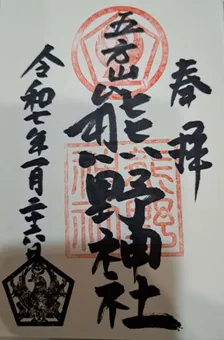 奉拝
五方山
熊野神社
令和七年一月二十六日